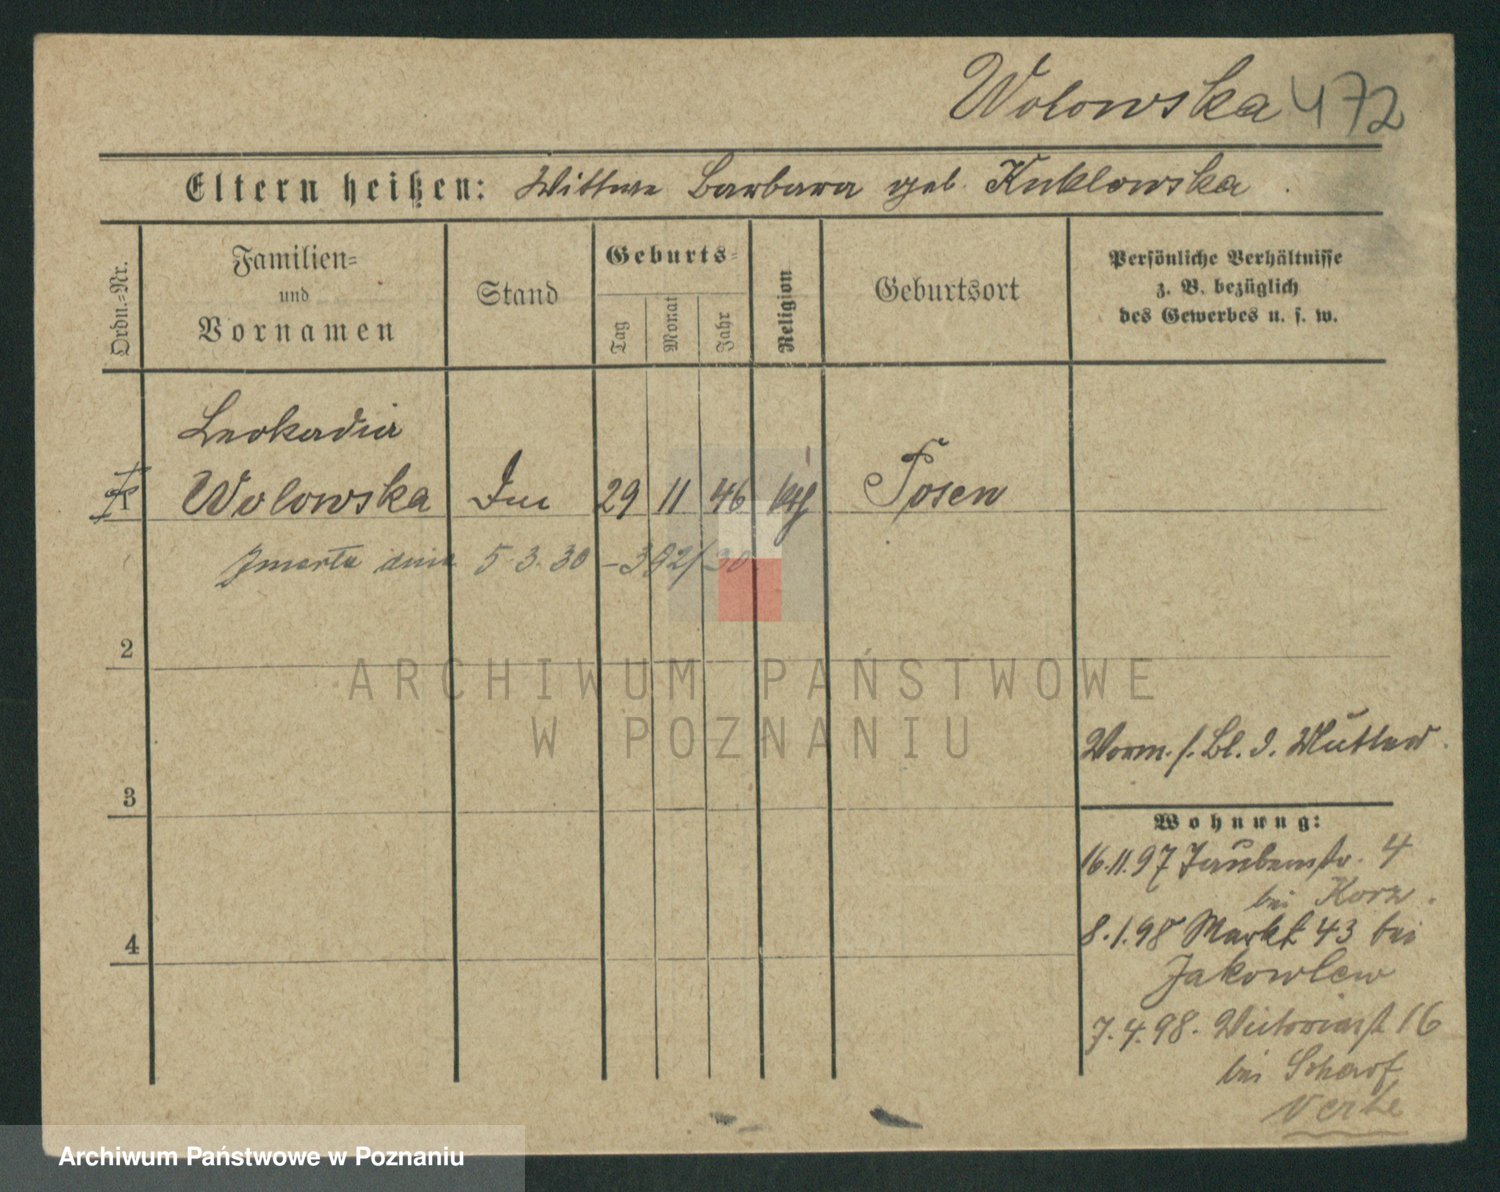 Wolowska 472
Eltern heißen: Wittwe Barbara geb. Kuklowska.
Ordn.=Nr.
Familien=
und
Vornamen
Stand
Geburts=
Tag
Monat
Jahr
Religion
Geburtsort
Persönliche Verhältnisse
z. B. bezüglich
des Gewerbes u. s. w.
Leokadia
1 Wolowska 29 11 46 kth Posen
Zmarła dnia 5.3.30 - 382/30
2
ARCHIWUM PAŃSTWOWE
W POZNANIU
Vorm. s. Bl. d. Mutter.
3
Wohnung:
16.11.97 Taubenstr. 4
bei Korz.
8.1.98 Markt 43 bei
Jakowlew
4
7.4.98. Victoriastr 16
bei Scharf
verte
Archiwum Państwowe w Poznaniu